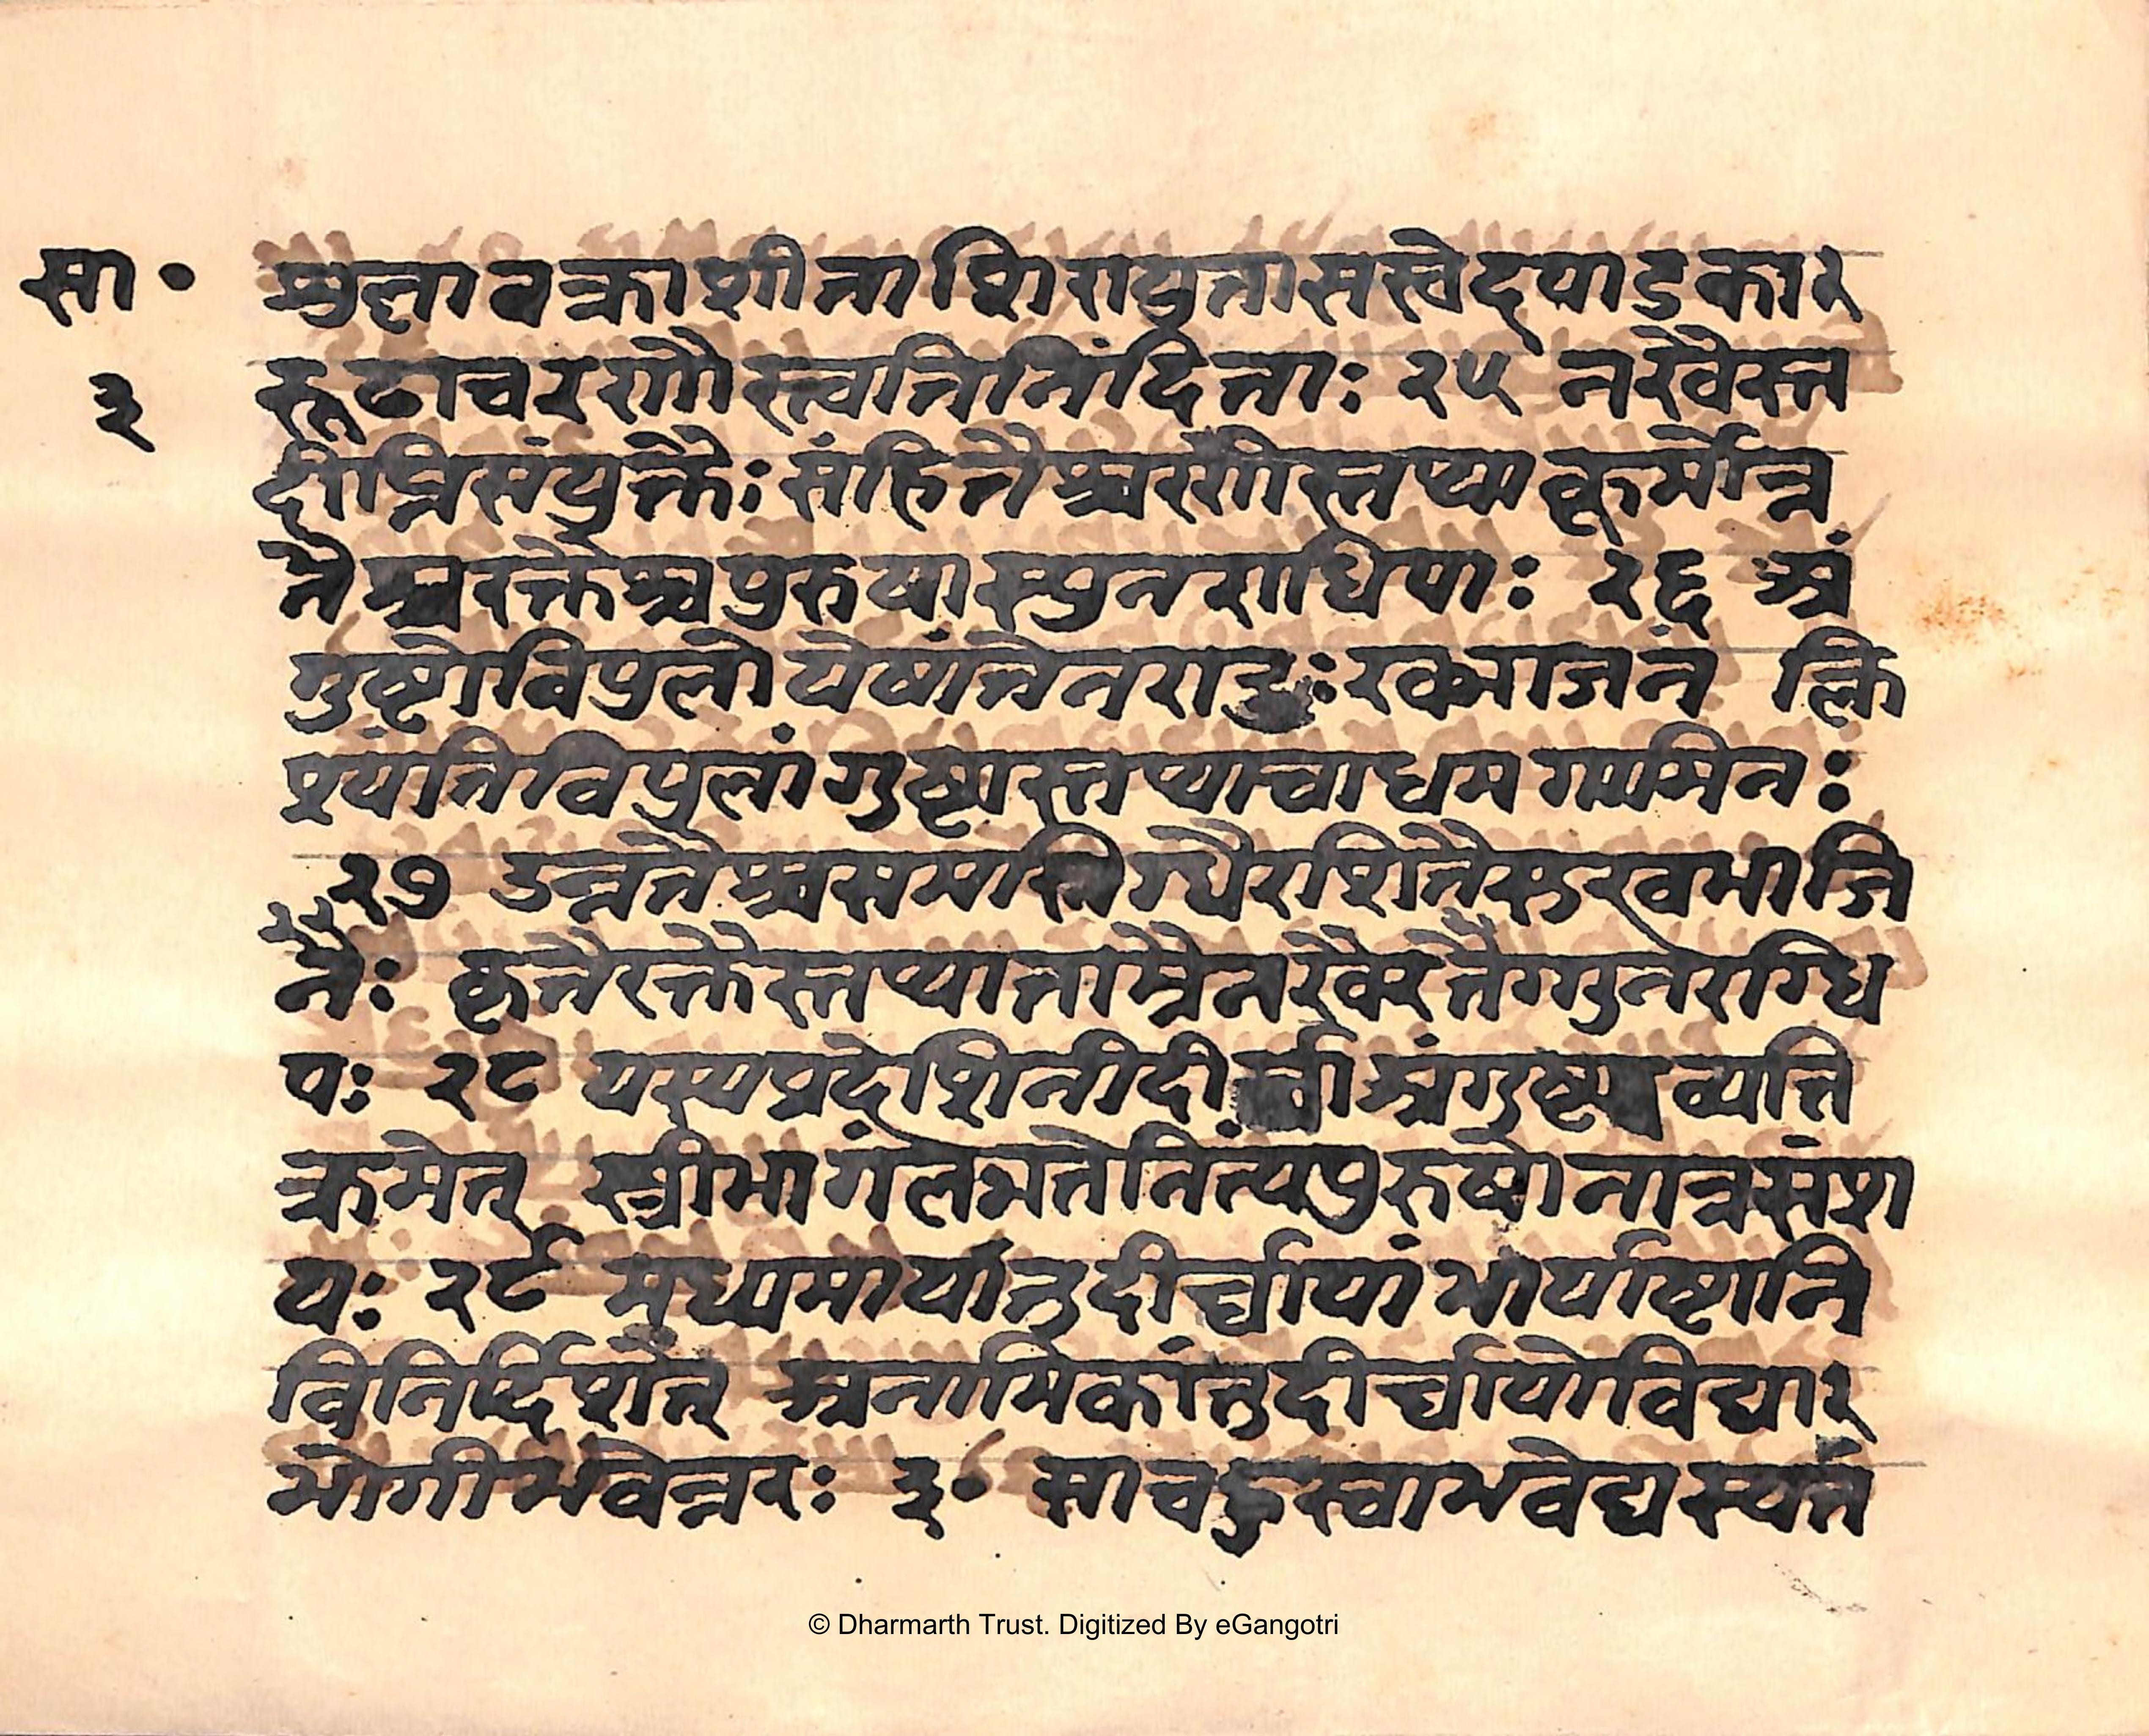 सा॰
३
स्थुलावक्राशीताशिरायुतासस्वेदपाडुकार
रूढाचरणौस्त्वतिनिंदिताः २५ नखैस्त
दीप्तिसंयुक्तैः संहितैश्चरणौस्तथा कूर्मोन्न
तैश्चरक्तेश्चपुरुषास्युनराधिपाः २६ अं
गुष्टोविपुलो येषांतेनराडुःरवभाजनं क्लि
श्यंतिविपुलांगुष्टास्तथाचाधमगामिनः
२७ उन्नतैश्चसमास्निग्धैरशितैस्सुखभाजि
तैः कृतैरक्तैस्तथाताम्रेनखैरेतैग्गुनराग्धि
पः २८ यस्यप्रदेशिनीदीर्घा अंगुष्टाव्यति
क्रमेत् स्त्रीभागंलभतेनित्यंपुरुषोनात्रसंश
यः २९ मध्यमायांतुदीर्घायां भार्याष्टानि
विनिर्दिशेत् अनामिकांतुदीर्घायोविद्यार
भोगीभवेन्नरः ३॰ साचह्रस्वाभवेद्यस्यतं
© Dharmarth Trust. Digitized By eGangotri